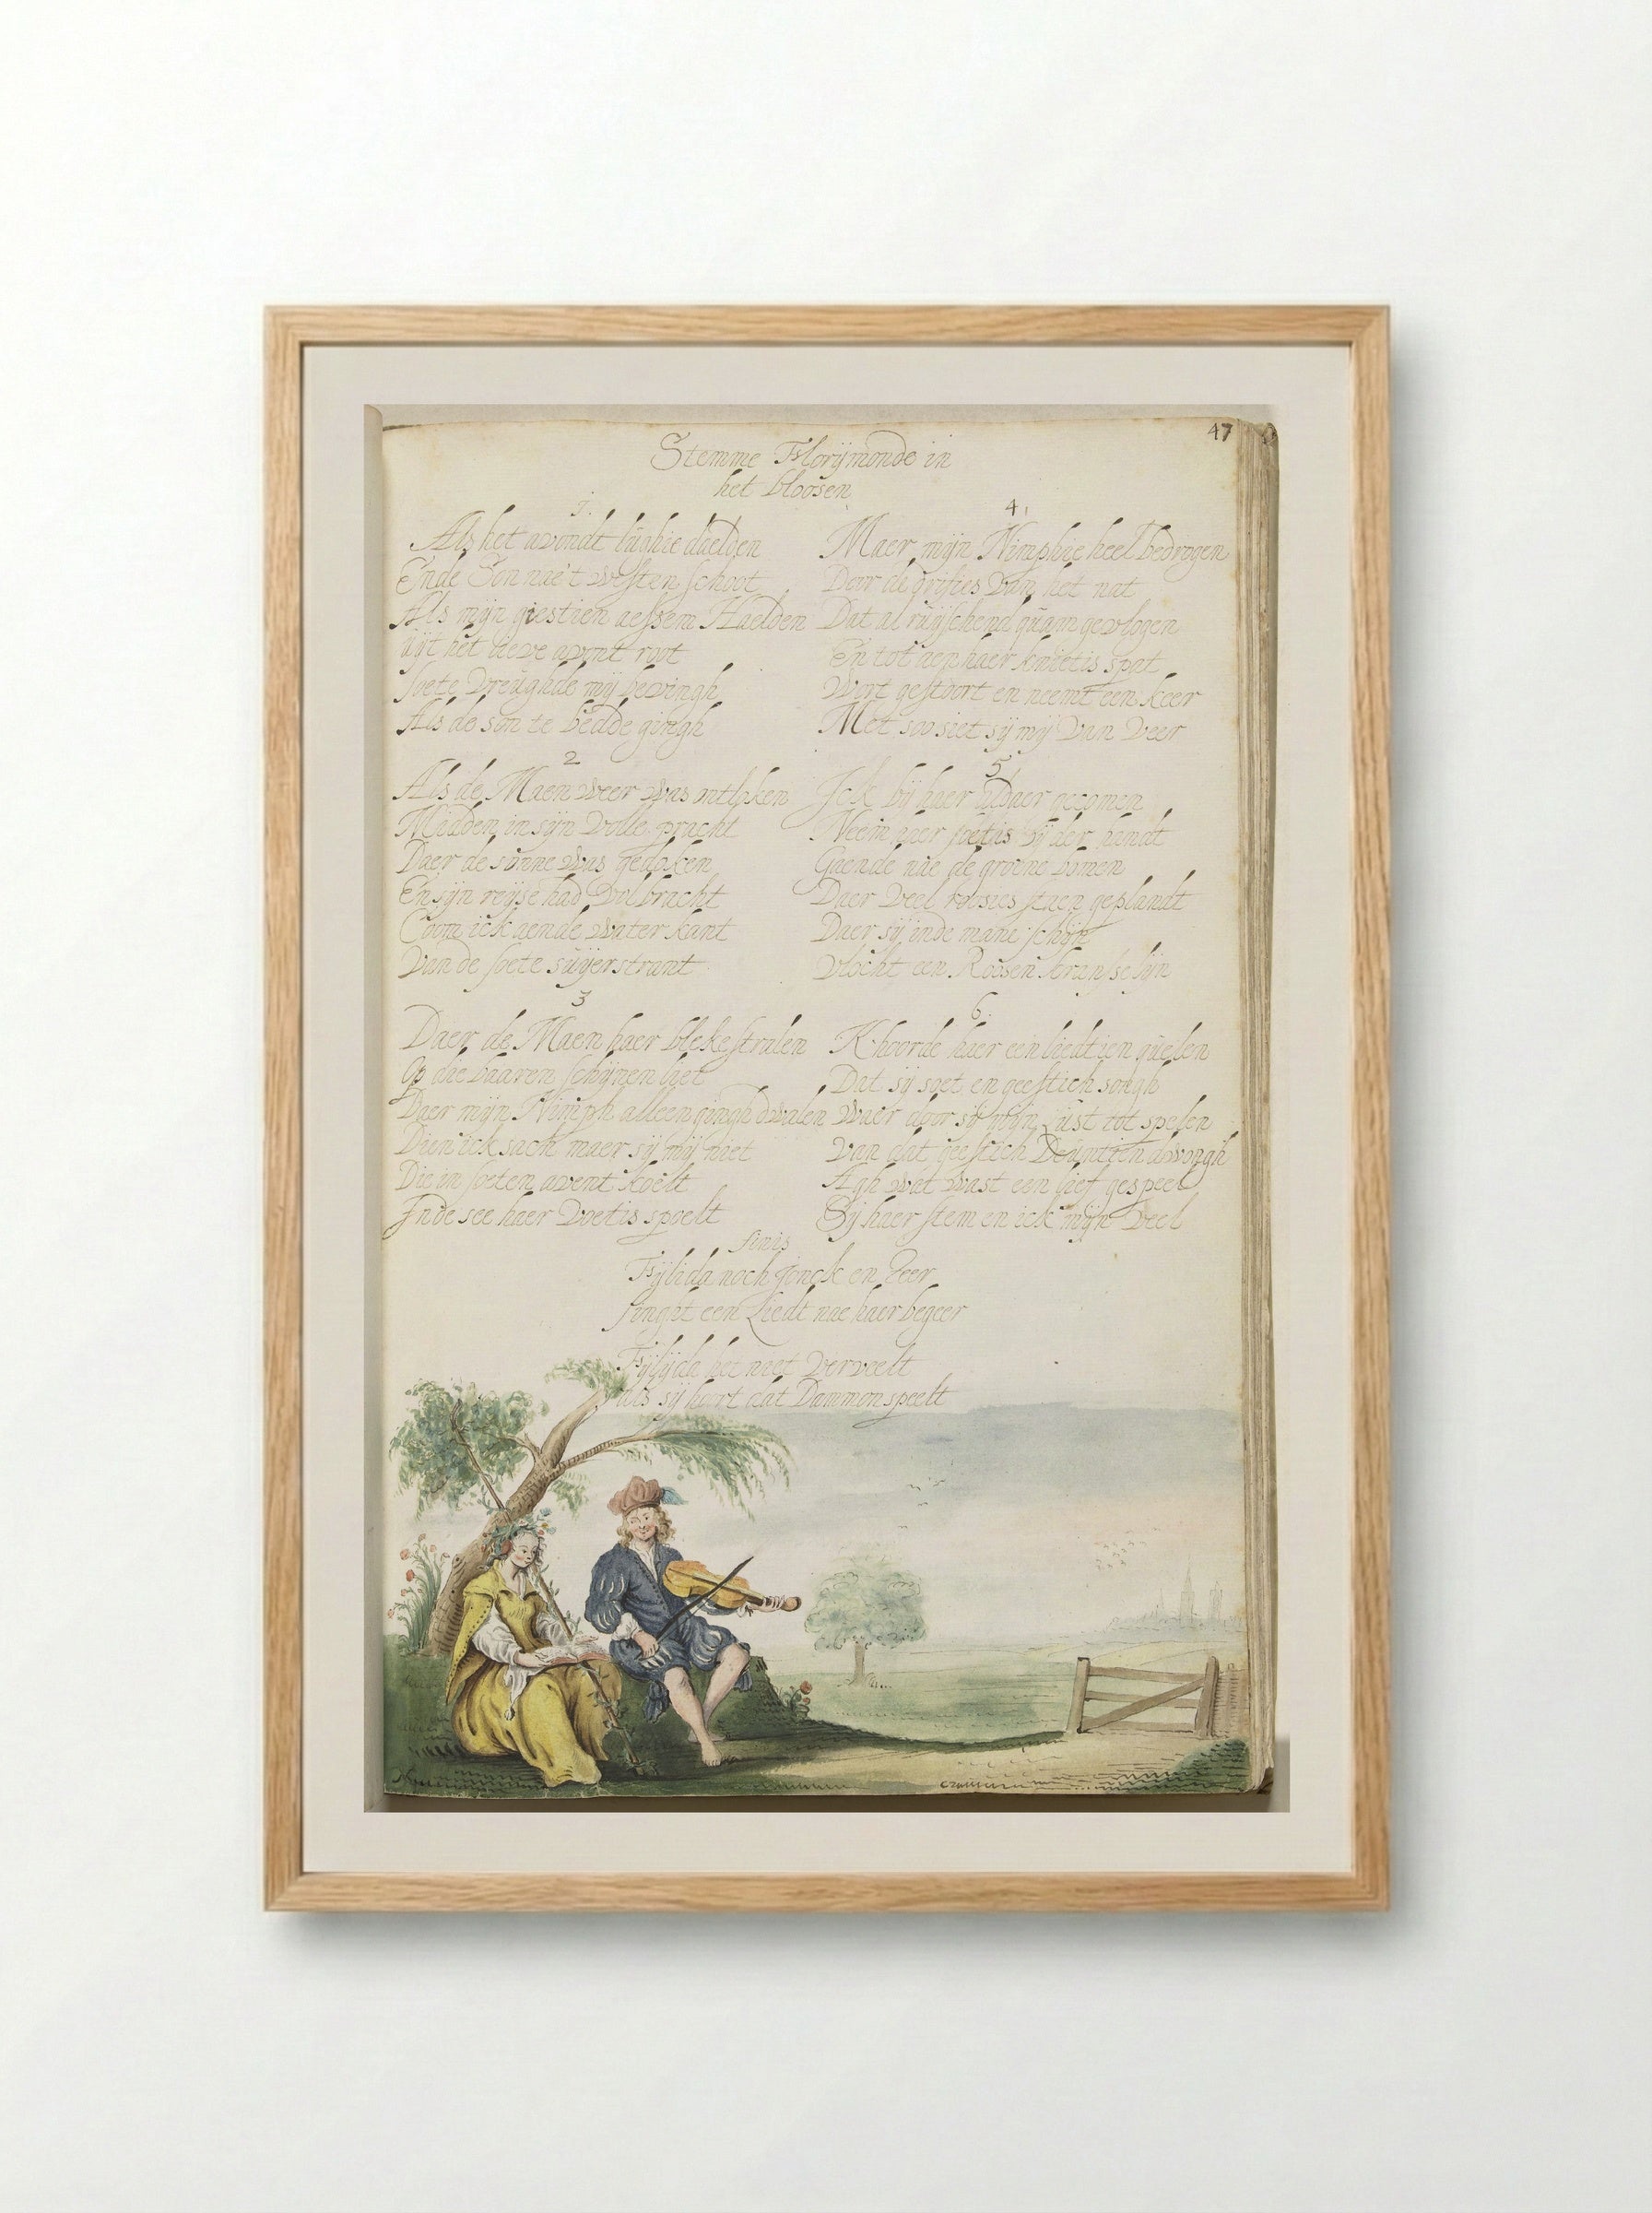 47
Stemme Florijmonde in
het bloosen
1.
Als het avondt lughie daelden
Ende Son nae't westen schoot
Als mijn giestien aessem Haelden
uijt het lieve avont root
soete vreughde mij bevingh
Als de son te bedde gingh
2
Als de Maen weer was ontloken
Midden in sijn volle pracht
Daer de sonne was gedoken
En sijn reijse had volbracht
Coom ick aende water kant
Van de soete suijerstrant
3
Daer de Maen haer bleke stralen
Op die baaren schijnen liet
Daer mijn Nimph alleen gingh dwalen
Dien ick sach maer sij mij niet
Die in soeten avent koelt
Inde see haer voetis spoelt
4.
Maer mijn Nimphie heel bedrogen
Door de grifties van het nat
Dat al ruijschend quam gevlogen
En tot aen haer knietis spat
Wort gestoort en neemt een keer
Met soo siet sij mij van veer
5
Ick bij haer daer gecomen
Neem haer soetis bij der handt
Gaende nae de groene bomen
Daer veel roosies staen geplandt
Daer sij inde mane schijn
vlocht een Roosen kranse fijn
6.
K hoorde haer een liedtien quelen
Dat sij soet en geestich songh
waer door sij mijn lust tot spelen
van dat geestich Deuntien dwongh
Agh wat wast een lief gespeel
Sij haer stem en ick mijn veel
finis
Fijlida noch jonck en teer
singht een Liedt nae haer begeer
Fijlijda het niet verveelt
als sij hoort dat Dammon speelt